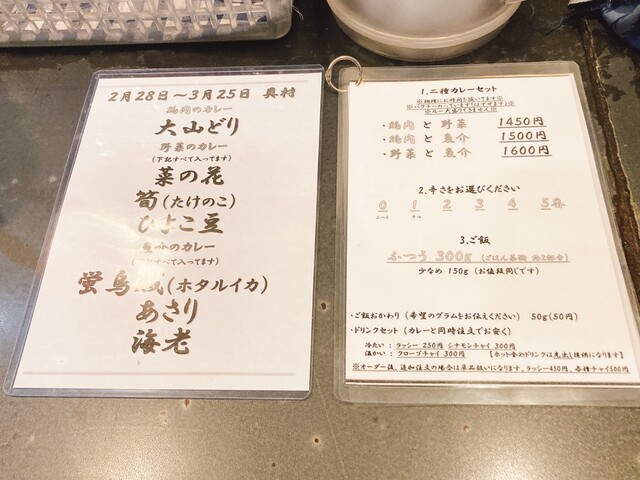 2月28日～3月25日 具材
鶏肉のカレー
大山どり
野菜のカレー
(下記すべて入ってます)
菜の花
筍(たけのこ)
ひよこ豆
魚介のカレー
すべて入ってます)
蛍烏賊(ホタルイカ)
あさり
海老
1.二種カレーセット
※調理にお時間を頂いてます※
※パクチーのっています(はずせます)※
※ルー大盛りできません※
・鶏肉 と 野菜 1450円
・鶏肉 と 魚介 1500円
・野菜 と 魚介 1600円
2.辛さをお選びください
0 1 2 3 4 5番
3.ご飯
ふつう 300g (ごはん茶碗 約2杯分)
少なめ 150g (お値段同じです)
・ご飯おかわり (希望のグラムをお伝えください) 50g(50円)
・ドリンクセット (カレーと同時注文でお安く)
冷たい:ラッシー 250円 シナモンチャイ 300円
温かい:クローブチャイ 300円 【ホット含めドリンクは先出し提供になります】
※オーダー後、追加注文の場合は単品扱いになります。ラッシー450円、各種チャイ500円